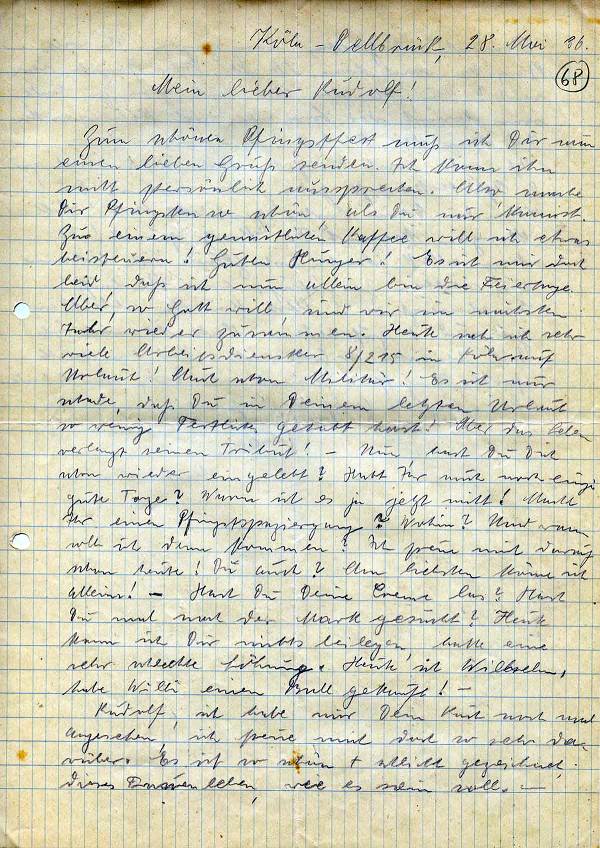 Köln - Dellbrück, 28. Mai 36.
68
Mein lieber Rudolf!
Zum schönen Pfingstfest muß ich Dir nun
einen lieben Gruß senden. Ich kann ihn
nicht persönlich aussprechen. Also mache
Dir Pfingsten so schön, als Du nur kannst.
Zu einem gemütlichen Kaffee will ich etwas
beisteuern! Guten Hunger! Es ist mir doch
leid, daß ich nun allein bin die Feiertage.
Aber, so Gott will, sind wir im nächsten
Jahr wieder zusammen. Heute sah ich sehr
viele Arbeitsdienstler 8/215 in Köln auf
Urlaub! Auch schon Militär! Es ist nur
schade, daß Du in Deinem letzten Urlaub
so wenig gehabt hast! Aber das Leben
verlangt seinen Tribut! - Nun hast Du Dich
schon wieder eingelebt? Habt Ihr auch noch einige
gute Tage? Warm ist es ja jetzt nicht! Macht
Ihr einen Pfingstspaziergang? Wohin? Und wann
soll ich denn kommen? Ich freue mich darauf
schon heute! Du auch? Am liebsten käme ich
allein! - Hast Du Deine Creme las? Hast
Du mal nach der Mark gesucht? Heute
kann ich Dir nichts beilegen, hatte eine
sehr schlechte Löhnung. Heute ist
habe Willi einen Ball gekauft! -
Rudolf, ich habe mir Dein noch mal
angesehen, ich freue mich doch so sehr da-
rüber. Es ist so schön + schlicht gezeichnet,
dieses leben, wie es sein soll. -